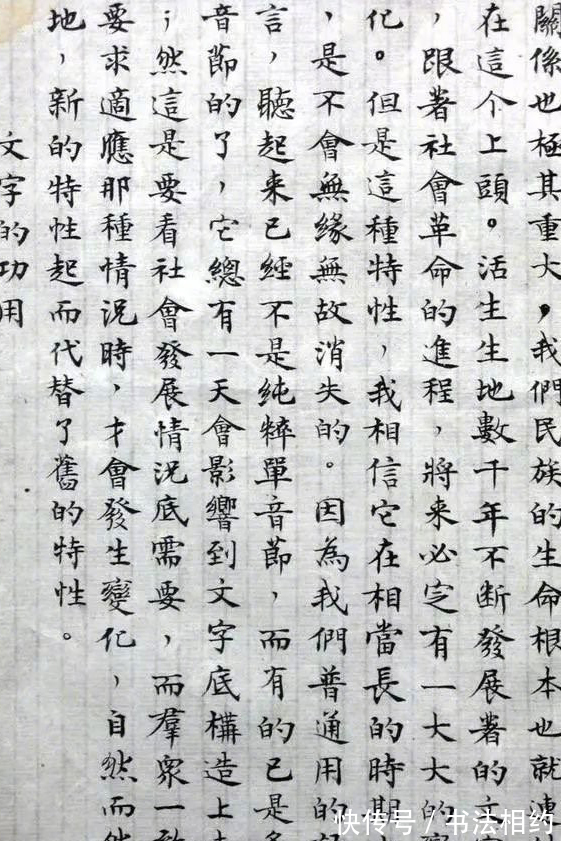 關係也極其重大，我們民族的生命根本也就連
在這个上頭。活生生地數千年不断發展著的文字
，跟著社會革命的進程，將来必定有一大大的變
化。但是這種特性，我相信它在相當長的時期
，是不會無緣無故消失的。因為我們普通用的
言，聽起来已經不是純粹單音節，而有的已是多
音節的了，它總有一天會影響到文字底構造上
；然這是要看社會發展情況底需要，而羣衆一致
要求適應那種情況時，才會發生變化，自然而然
地，新的特性起而代替了舊的特性。
文字的功用
快传号/书法相约